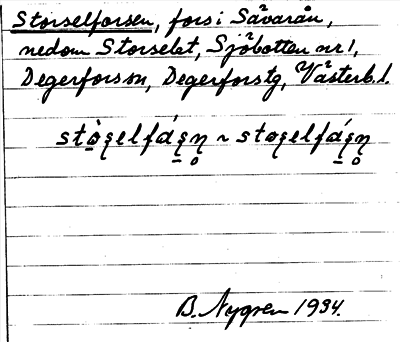 Storselforsen, fors i Sävarån,
nedom Storselet, Sjöbotten nr 1,
Degerforssn, Degerforstg, Västerb. l.
B. Nygren 1934.